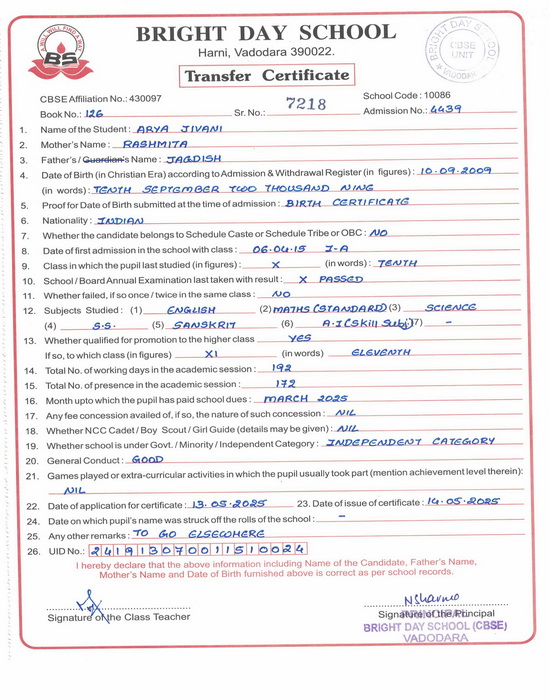 A WILL WILL FIND A WAY
BS
BRIGHT DAY SCHOOL
Harni, Vadodara 390022.
Transfer Certificate
BRIGHT DAY SCHOOL
CBSE
UNIT
VADODARA
CBSE Affiliation No.: 430097
School Code : 10086
Book No.: 126 Sr. No.: 7218 Admission No.: 4439
1. Name of the Student : ARYA JIVANI
2. Mother's Name : RASHMITA
3. Father's / Guardian's Name : JAGDISH
4. Date of Birth (in Christian Era) according to Admission & Withdrawal Register (in figures) : 10.09.2009
(in words) : TENTH SEPTEMBER TWO THOUSAND NINE
5. Proof for Date of Birth submitted at the time of admission : BIRTH CERTIFICATE
6. Nationality : INDIAN
7. Whether the candidate belongs to Schedule Caste or Schedule Tribe or OBC : NO
8. Date of first admission in the school with class : 06.04.15 I-A
9. Class in which the pupil last studied (in figures) : X (in words) : TENTH
10. School / Board Annual Examination last taken with result : X PASSED
11. Whether failed, if so once / twice in the same class : NO
12. Subjects Studied : (1) ENGLISH (2) MATHS (STANDARD) (3) SCIENCE
(4) S.S. (5) SANSKRIT (6) A.I (Skill Subj) (7) -
13. Whether qualified for promotion to the higher class YES
If so, to which class (in figures) XI (in words) ELEVENTH
14. Total No. of working days in the academic session : 192
15. Total No. of presence in the academic session : 172
16. Month upto which the pupil has paid school dues : MARCH 2025
17. Any fee concession availed of, if so, the nature of such concession : NIL
18. Whether NCC Cadet / Boy Scout / Girl Guide (details may be given) : NIL
19. Whether school is under Govt. / Minority / Independent Category : INDEPENDENT CATEGORY
20. General Conduct : GOOD
21. Games played or extra-curricular activities in which the pupil usually took part (mention achievement level therein) :
NIL
22. Date of application for certificate : 13.05.2025 23. Date of issue of certificate : 14.05.2025
24. Date on which pupil's name was struck off the rolls of the school : -
25. Any other remarks : TO GO ELSEWHERE
26. UID No.: 241913070011510024
I hereby declare that the above information including Name of the Candidate, Father's Name,
Mother's Name and Date of Birth furnished above is correct as per school records.
NSharma
Signature of the Class Teacher Signature of the Principal
PRINCIPAL
BRIGHT DAY SCHOOL (CBSE)
VADODARA